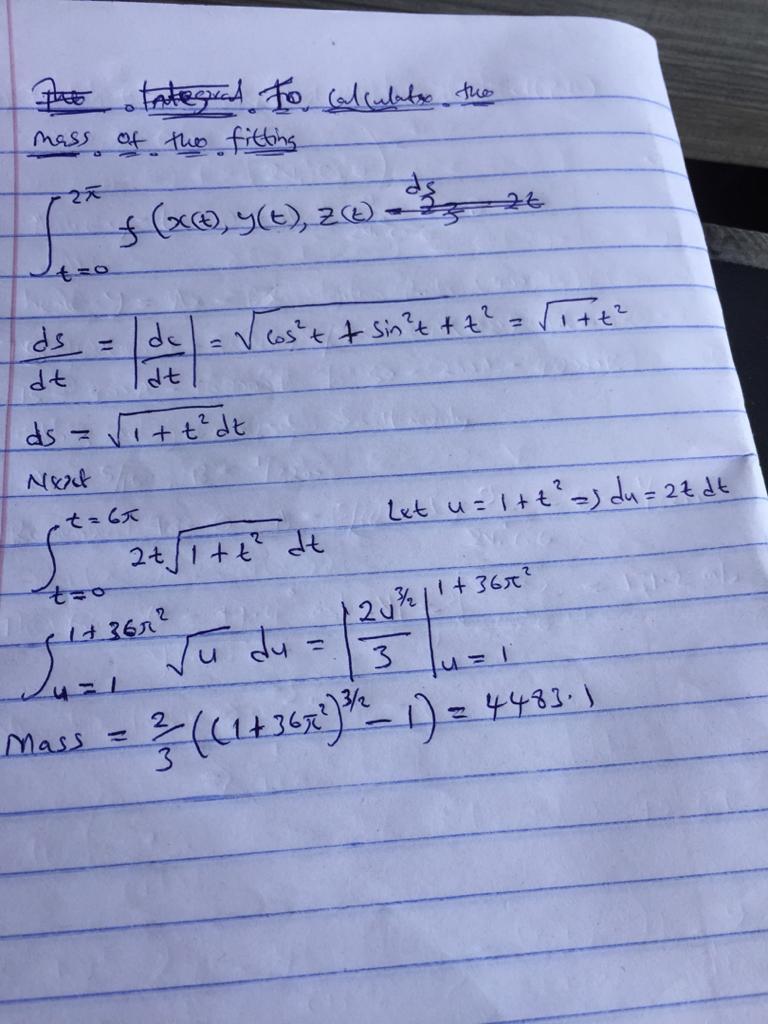 The Integral To calculate the
mass of the fitting
∫_{t=0}^{2π} f (x(t), y(t), z(t) ds
ds/dt = |dc/dt| = √(cos²t + sin²t + t²) = √(1+t²)
ds = √(1+t²) dt
Next
∫_{t=0}^{t=6π} 2t√(1+t²) dt Let u = 1+t² => du = 2t dt
∫_{u=1}^{1+36π²} √u du = |2u^{3/2}/3|_{u=1}^{1+36π²}
Mass = 2/3 ((1+36π²)^{3/2} - 1) = 4483.1